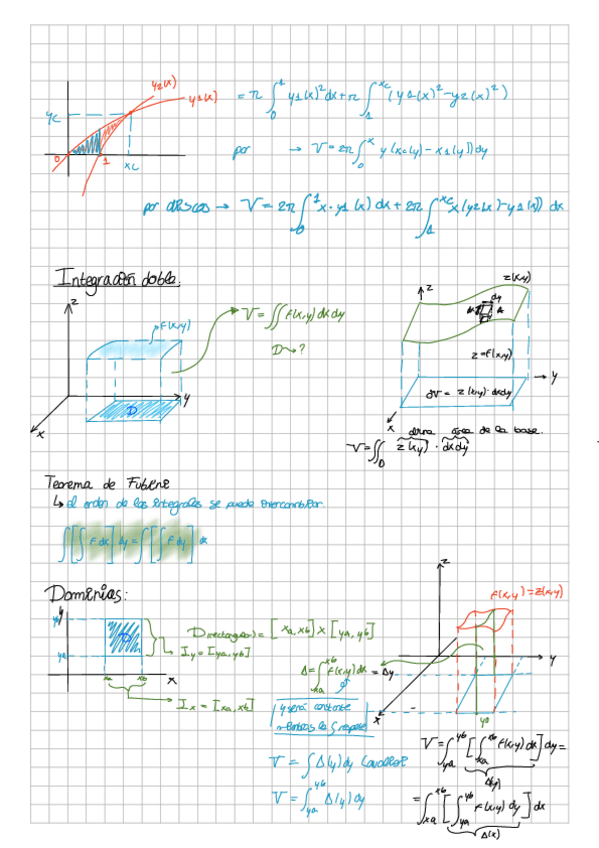 y2(x)
y1(x)
yc
0
1
xc
= π ∫₀¹ y1(x)² dx + π ∫₁^xc (y1(x)² - y2(x)²)
por → V = 2π ∫₀ y(xc(y) - x1(y)) dy
por → V = 2π ∫₀¹ x · y1(x) dx + 2π ∫₁^xc x(y2(x) - y1(x)) dx
Integración doble:
z
F(x,y)
D
y
x
V = ∫∫ f(x,y) dx dy
D → ?
z
z(x,y)
dy
dx
z = f(x,y)
y
dV = z(x,y) · dx dy
x
área de la base.
V = ∫∫_D z(x,y) · dx dy
Teorema de Fubini
↳ el orden de las integrales se puede intercambiar.
∫[∫ F dx] dy = ∫[∫ F dy] dx
Dominios:
y
yb
ya
D
xa
xb
x
D rectangular = [xa, xb] x [ya, yb]
Iy = [ya, yb]
Ix = [xa, xb]
z
f(x,y) = z(x,y)
y
x
y0
A = ∫_xa^xb f(x,y) dx = Ay
y será constante
mientras la ∫ respete
V = ∫ A(y) dy Cavalieri
V = ∫_ya^yb A(y) dy
V = ∫_ya^yb [∫_xa^xb f(x,y) dx] dy =
A(y)
= ∫_xa^xb [∫_ya^yb f(x,y) dy] dx
A(x)